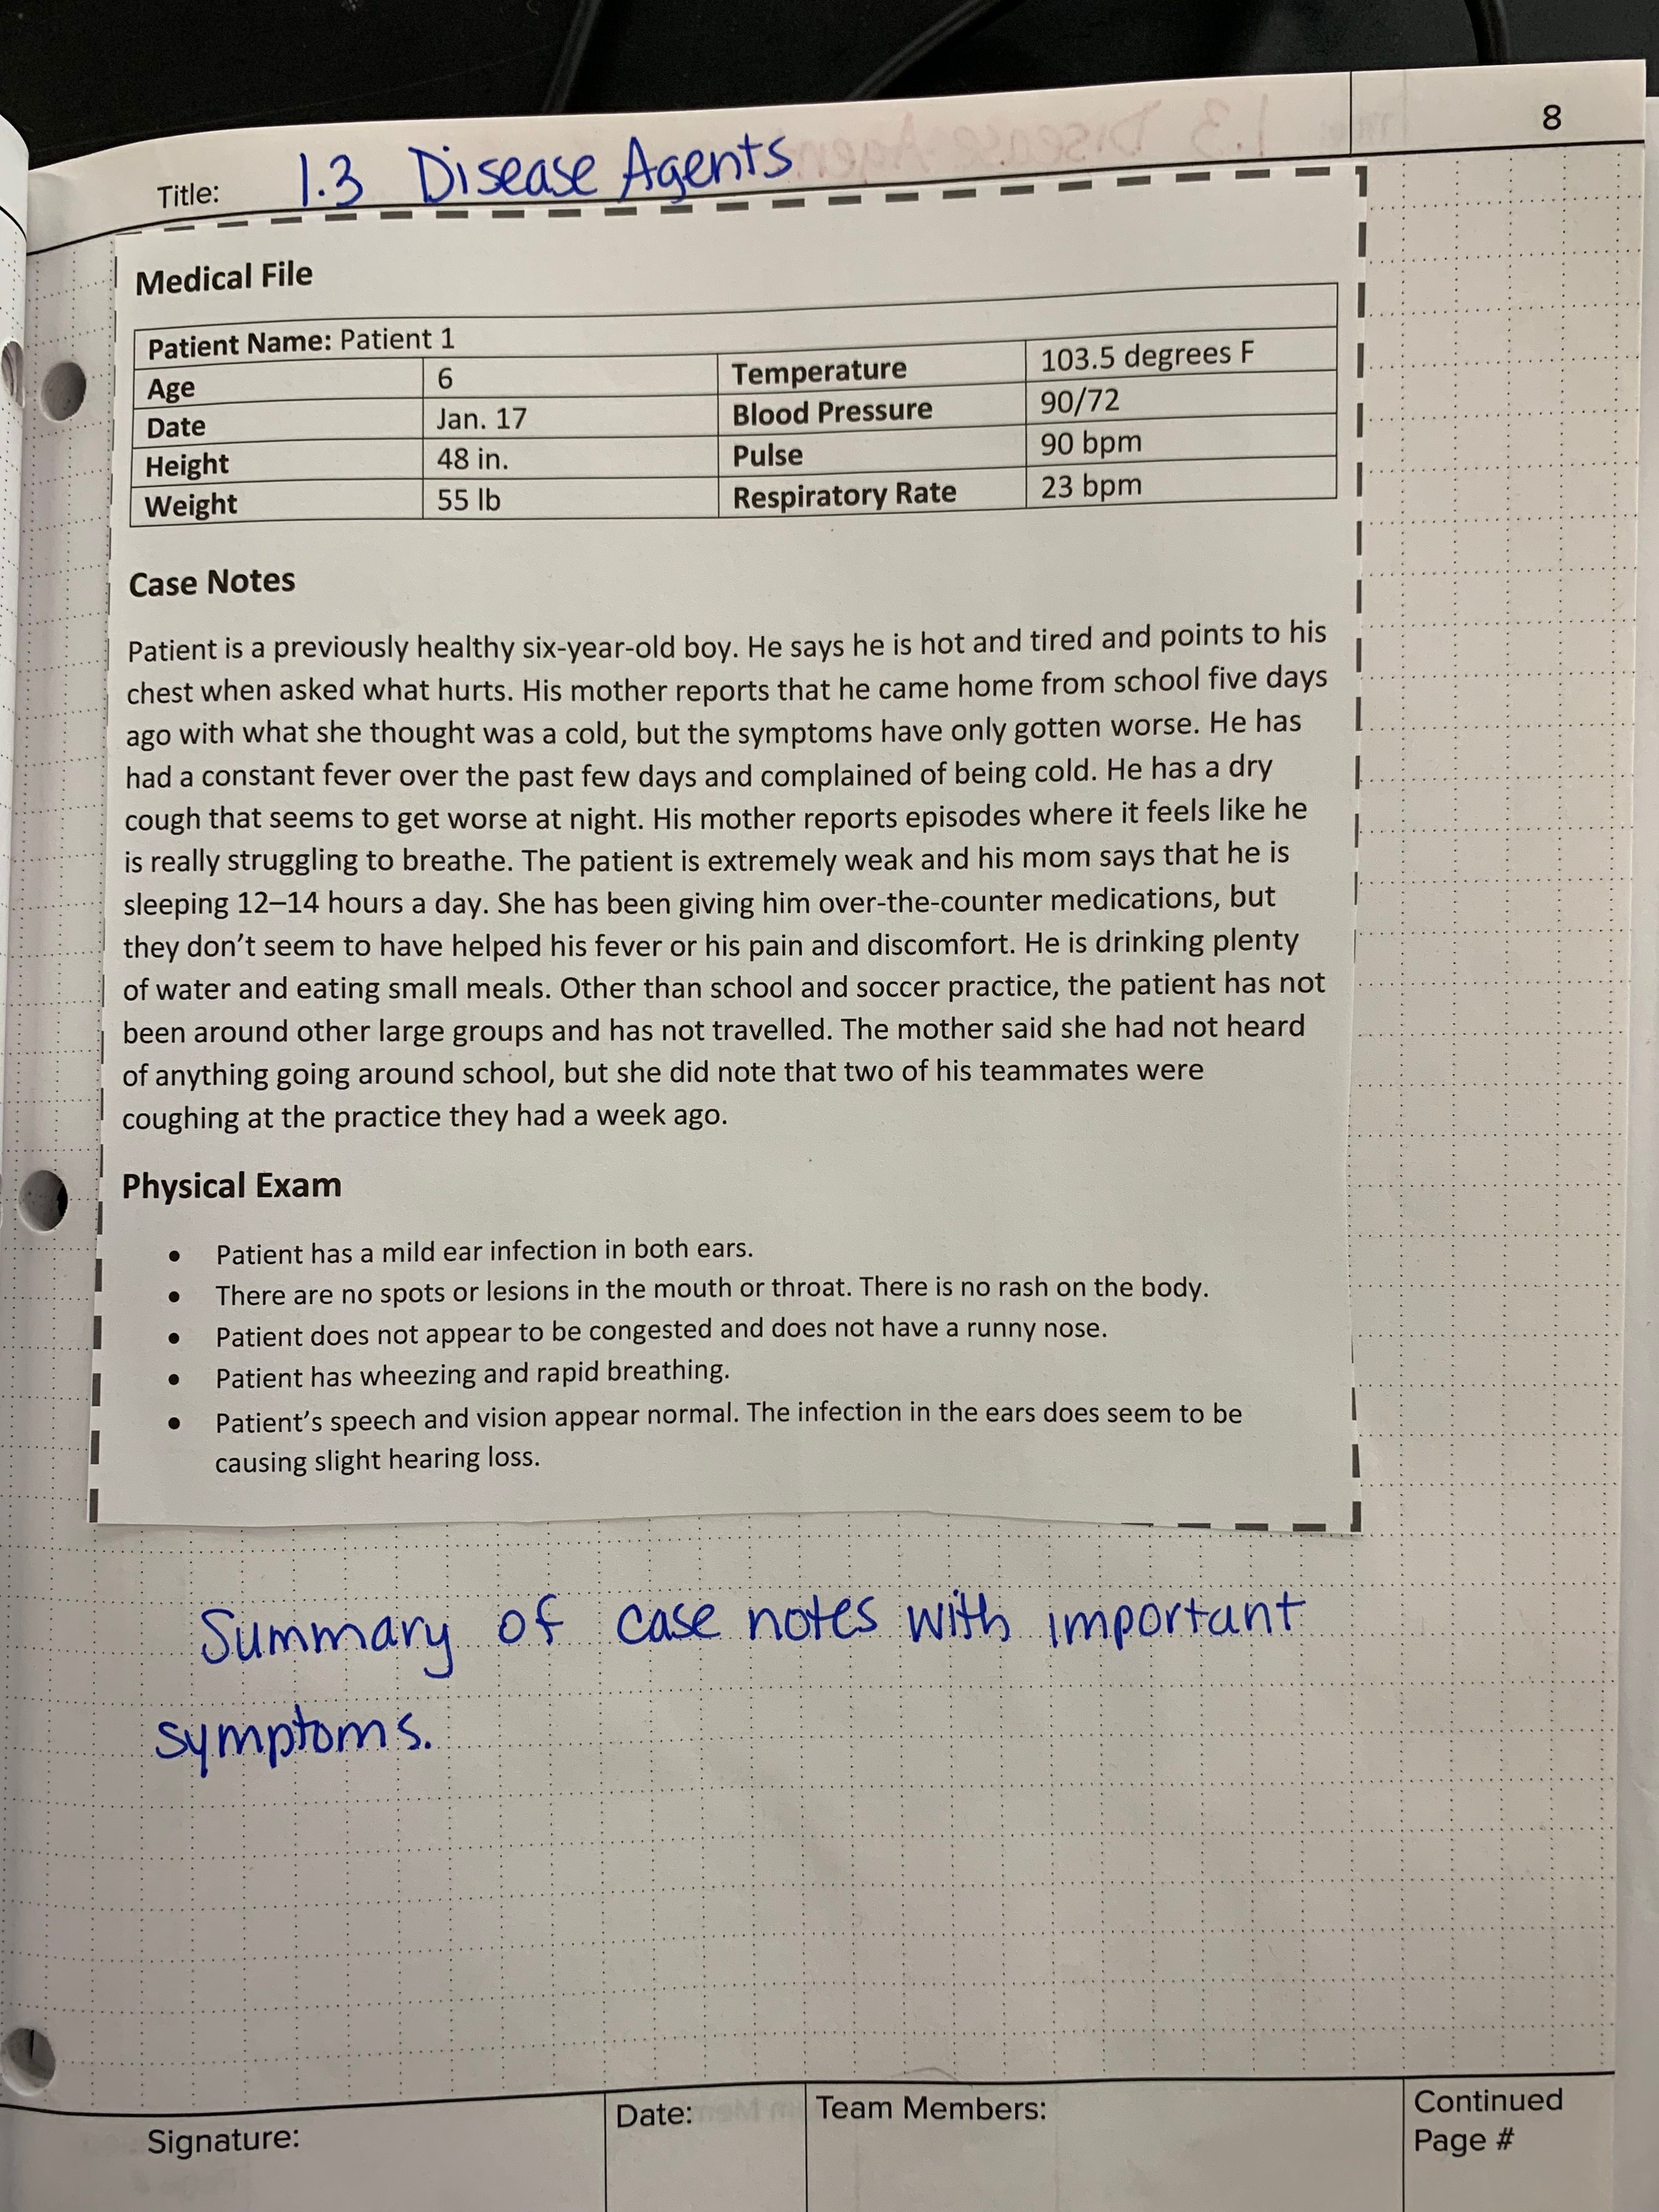 8
Title: 1.3 Disease Agents
Medical File
Patient Name: Patient 1
Age 6 Temperature 103.5 degrees F
Date Jan. 17 Blood Pressure 90/72
Height 48 in. Pulse 90 bpm
Weight 55 lb Respiratory Rate 23 bpm
Case Notes
Patient is a previously healthy six-year-old boy. He says he is hot and tired and points to his
chest when asked what hurts. His mother reports that he came home from school five days
ago with what she thought was a cold, but the symptoms have only gotten worse. He has
had a constant fever over the past few days and complained of being cold. He has a dry
cough that seems to get worse at night. His mother reports episodes where it feels like he
is really struggling to breathe. The patient is extremely weak and his mom says that he is
sleeping 12–14 hours a day. She has been giving him over-the-counter medications, but
they don't seem to have helped his fever or his pain and discomfort. He is drinking plenty
of water and eating small meals. Other than school and soccer practice, the patient has not
been around other large groups and has not travelled. The mother said she had not heard
of anything going around school, but she did note that two of his teammates were
coughing at the practice they had a week ago.
Physical Exam
• Patient has a mild ear infection in both ears.
• There are no spots or lesions in the mouth or throat. There is no rash on the body.
• Patient does not appear to be congested and does not have a runny nose.
• Patient has wheezing and rapid breathing.
• Patient's speech and vision appear normal. The infection in the ears does seem to be
causing slight hearing loss.
Summary of case notes with important
symptoms.
Signature: Date: Team Members: Continued
Page #